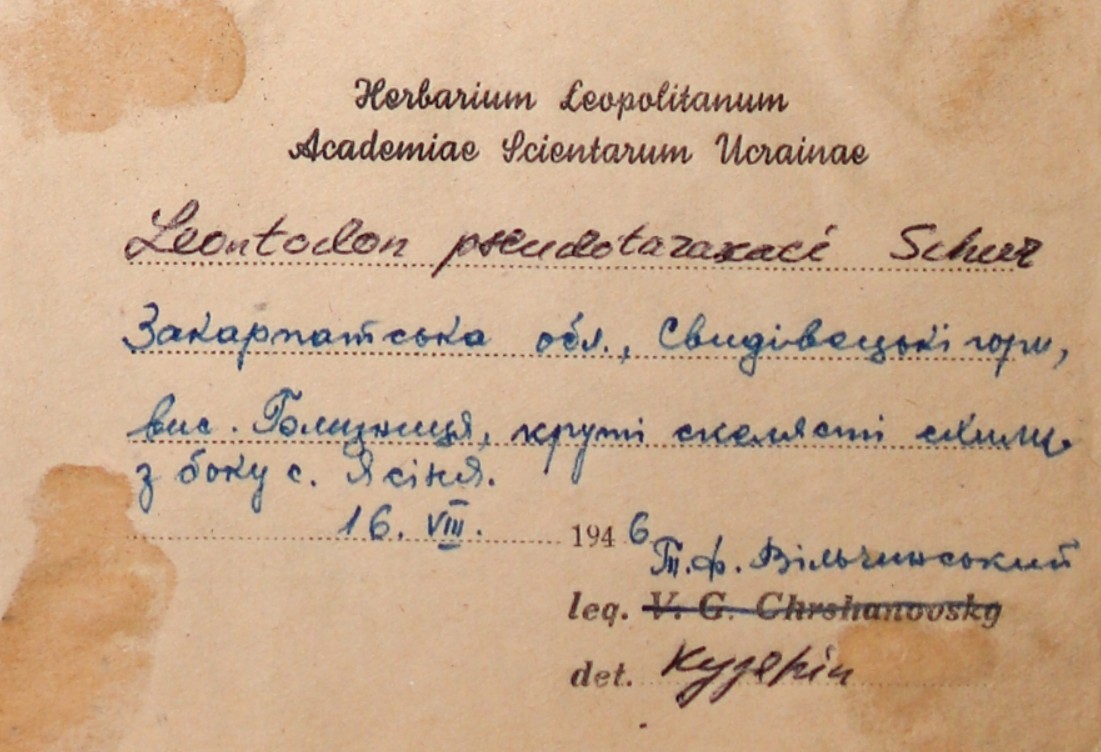 Herbarium Leopolitanum
Academiae Scientarum Ucrainae
Leontodon pseudotaraxaci Schur
Закарпатська обл., Свидівецькі гори,
вис. Близниця, круті скелясті схили
з боку с. Ясіня.
16. VIII. 1946
Т.ф. Вільчинський
leg. V. G. Chrshanovsky
det.